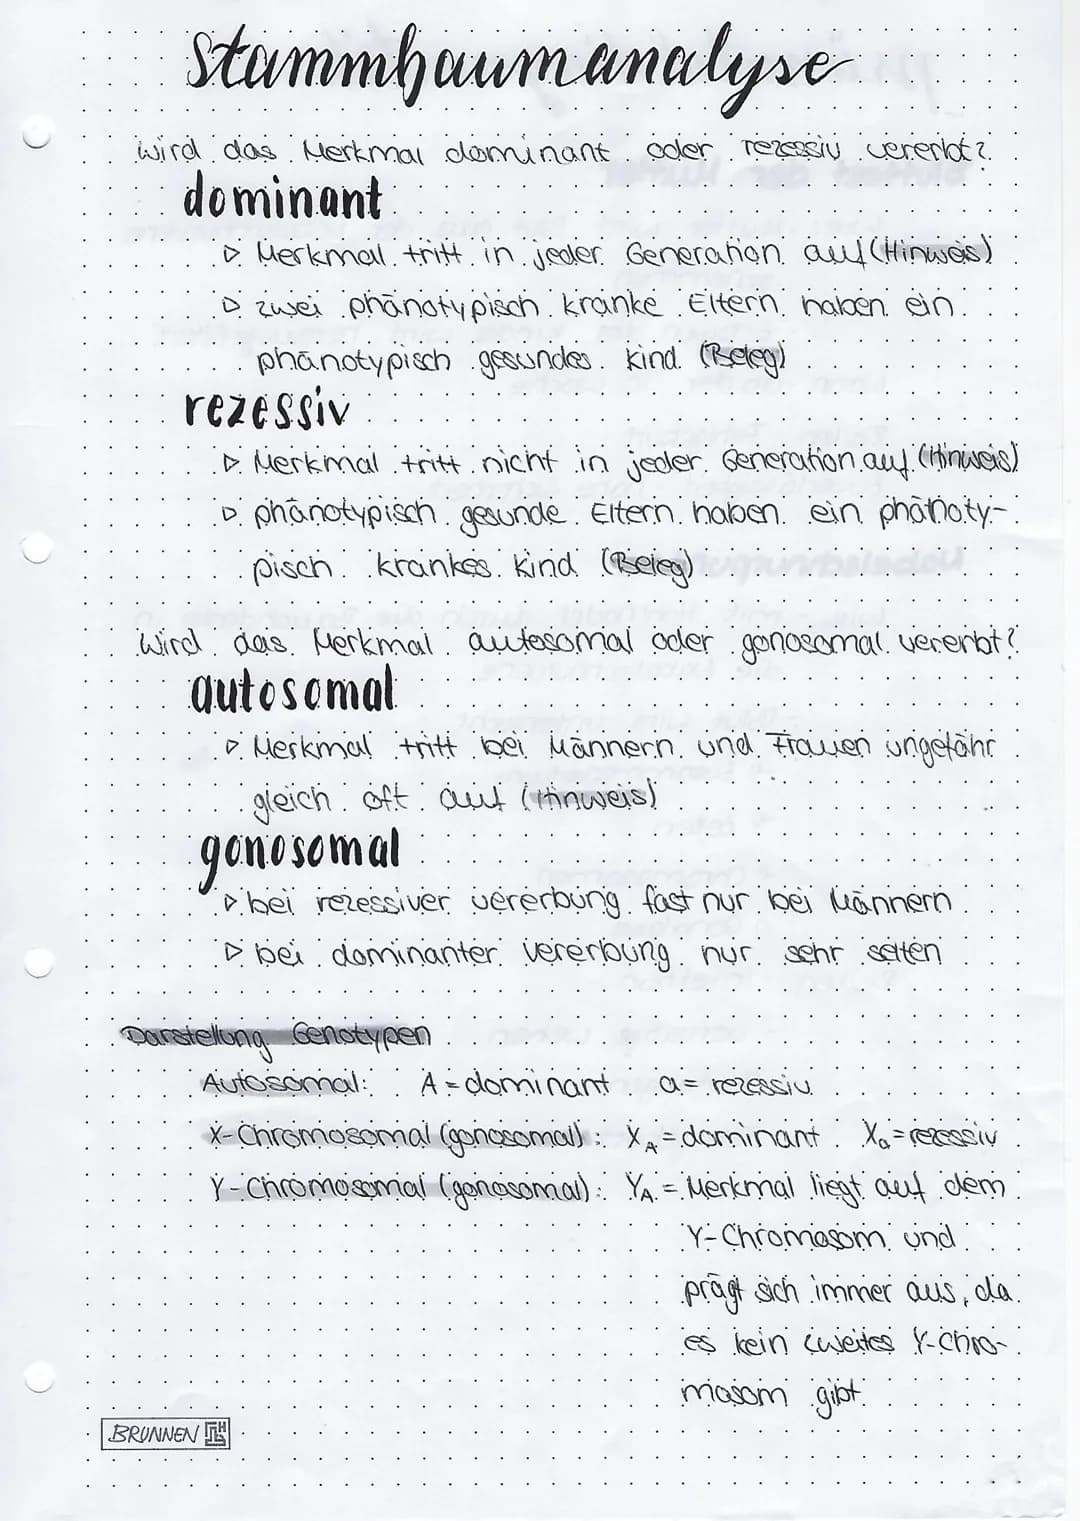 Stammbaumanalyse
Wird das Merkmal dominant oder rezessiv vererbt?
dominant
▷ Merkmal tritt in jeder Generation auf (Hinweis)
▷ zwei phänotypisch kranke Eltern haben ein
phänotypisch gesundes Kind (Beleg)
rezessiv
▷ Merkmal tritt nicht in jeder Generation auf (Hinweis)
▷ phänotypisch gesunde Eltern haben ein phänoty-
pisch krankes Kind (Beleg)
Wird das Merkmal autosomal oder gonosomal vererbt?
autosomal
▷ Merkmal tritt bei Männern und Frauen ungefähr
gleich oft auf (Hinweis)
gonosomal
▷ bei rezessiver Vererbung fast nur bei Männern
▷ bei dominanter Vererbung nur sehr selten
Darstellung Genotypen
Autosomal: A = dominant a = rezessiv
X-Chromosomal (gonosomal): X_A = dominant X_a = rezessiv
Y-Chromosomal (gonosomal): Y_A = Merkmal liegt auf dem
Y-Chromosom und
prägt sich immer aus, da
es kein zweites Y-Chro-
mosom gibt
BRUNNEN